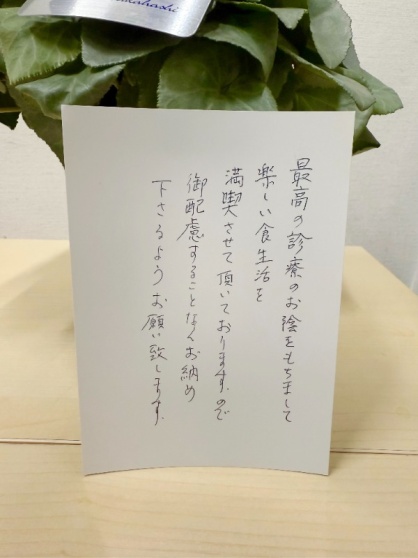 最高の診療のお陰をもちまして
楽しい食生活を
満喫させて頂いております。ので
御配慮することなくお納め
下さるようお願い致します。